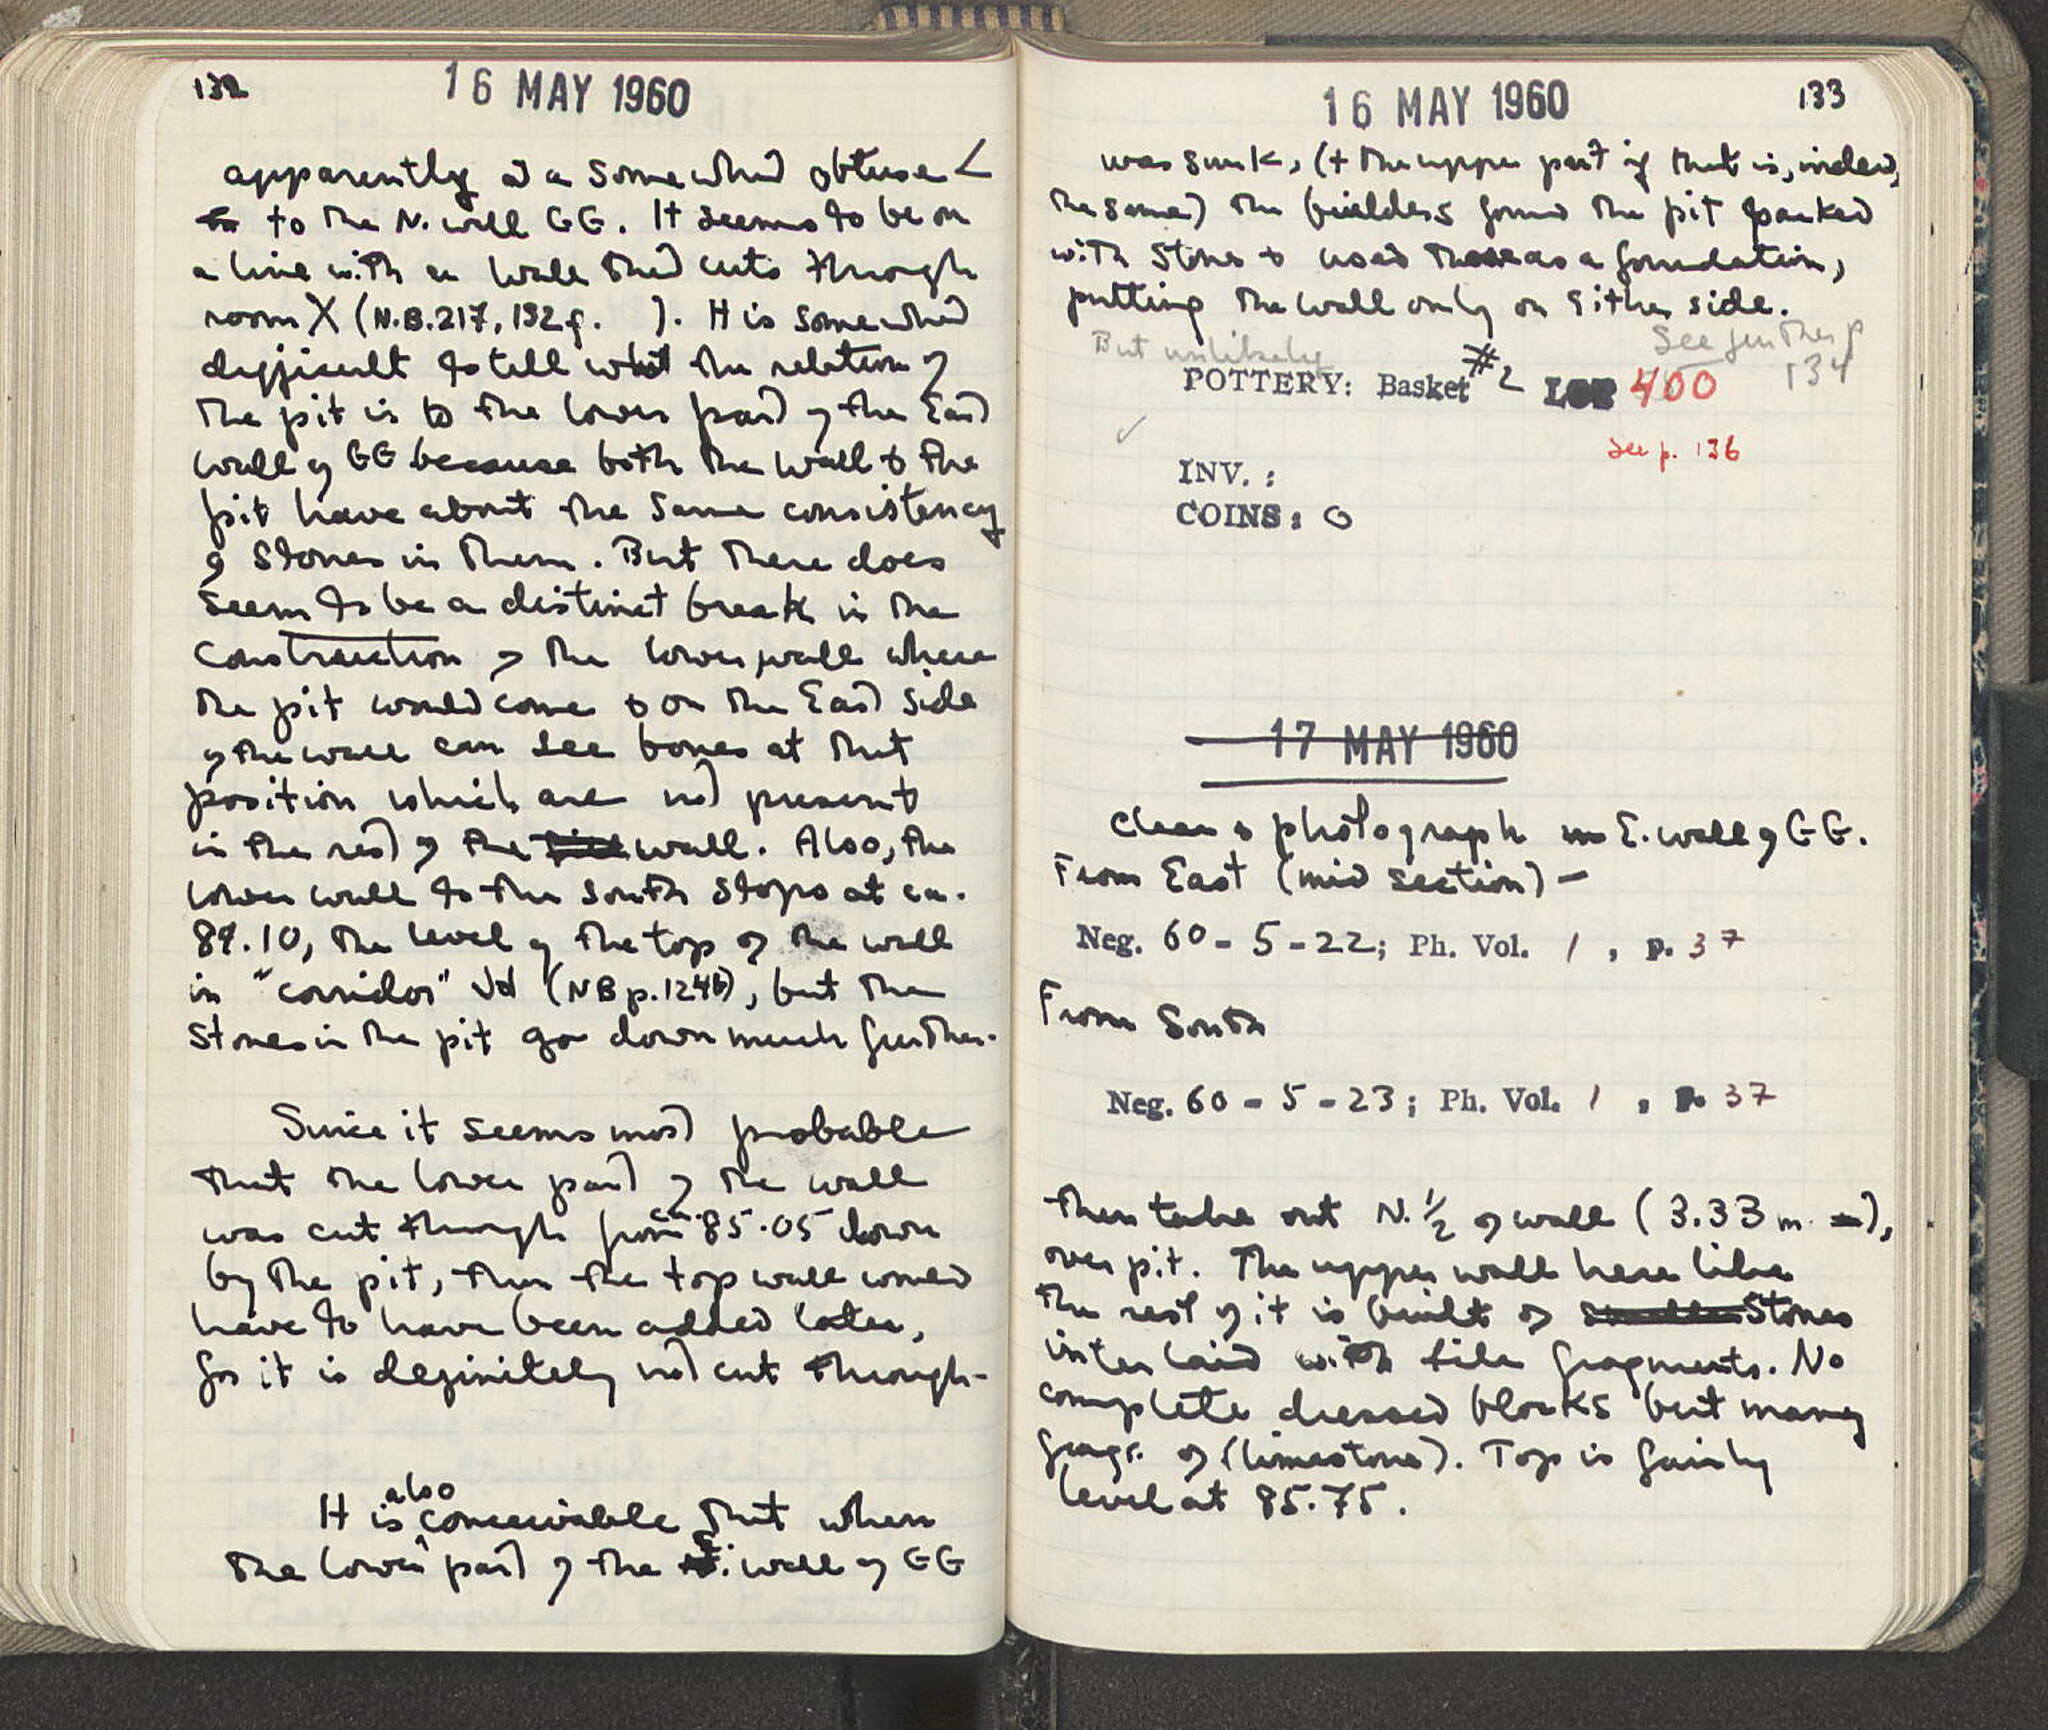 132
16 MAY 1960
apparently at a somewhat obtuse <
to the N. wall GG. It seems to be on
a line with a wall that cuts through
room X (N.B. 217, 132f. ). It is somewhat
difficult to tell what the relation of
the pit is to the lower part of the East
wall of GG because both the wall & the
pit have about the same consistency
of stones in them. But there does
seem to be a distinct break in the
construction of the lower wall where
the pit would come & on the East side
of the wall can see bones at that
position which are not present
in the rest of the wall. Also, the
lower wall to the south stops at ca.
84.10, the level of the top of the wall
in "corridor" Vd (NB p. 124b), but the
stones in the pit go down much further.
Since it seems most probable
that the lower part of the wall
was cut through from ca. 85.05 down
by the pit, then the top wall would
have to have been added later,
for it is definitely not cut through.
It is also conceivable that when
the lower part of the E. wall of GG
133
16 MAY 1960
was sunk, (+ the upper part if that is, indeed,
the same) the builders found the pit packed
with stones & used these as a foundation,
putting the wall only on either side.
But unlikely
See further p
134
POTTERY: Basket #2 LOT 400
✓
see p. 136
INV. :
COINS: 0
17 MAY 1960
Clean & photograph E. wall of GG.
From East (mid section) –
Neg. 60-5-22; Ph. Vol. 1, p. 37
From South
Neg. 60-5-23; Ph. Vol. 1, p. 37
Then take out N. ½ of wall (3.33 m.),
over pit. The upper wall here like
the rest of it is built of stones
interlaid with tile fragments. No
complete dressed blocks but many
frags. of (limestone). Top is fairly
level at 85.75.